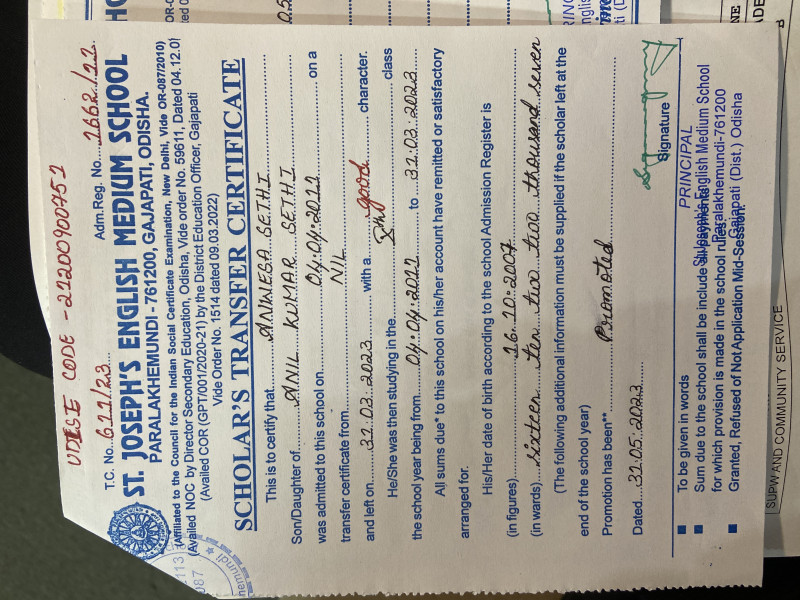 UDISE CODE - 21200900751
T.C. No. 611/23 Adm. Reg. No. 1662/23
ST. JOSEPH'S ENGLISH MEDIUM SCHOOL
PARALAKHEMUNDI - 761200, GAJAPATI, ODISHA.
(Affiliated to the Council for the Indian Social Certificate Examination, New Delhi, Vide OR-087/2010)
(Availed NOC by Director Secondary Education, Odisha, Vide order No. 59611, Dated 04.12.0
(Availed COR (GPT/001/2020-21) by the District Education Officer, Gajapati
Vide Order No. 1514 dated 09.03.2022)
SCHOLAR'S TRANSFER CERTIFICATE
This is to certify that ANWESA SETHI
Son/Daughter of ANIL KUMAR SETHI
was admitted to this school on 04.04.2011 on a
transfer certificate from NIL
and left on 31.03.2023 with a good character.
He/She was then studying in the class
the school year being from 04.04.2011 to 31.03.2023
All sums due* to this school on his/her account have remitted or satisfactory
arranged for.
His/Her date of birth according to the school Admission Register is
(in figures) 16.10.2007
(in wards) sixteen ten two two thousand seven
(The following additional information must be supplied if the scholar left at the
end of the school year)
Promotion has been** Promoted
Dated 31.05.2023
Signature
PRINCIPAL
St. Joseph's English Medium School
Paralakhemundi-761200
Gajapati (Dist.) Odisha
To be given in words
Sum due to the school shall be include all payments
for which provision is made in the school rules
Granted, Refused of Not Application Mid-Session.
SUPW AND COMMUNITY SERVICE